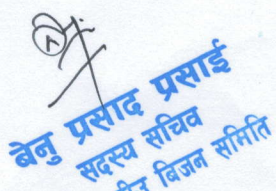 बेनु प्रसाद प्रसाई
सदस्य सचिव
बिजन समिति